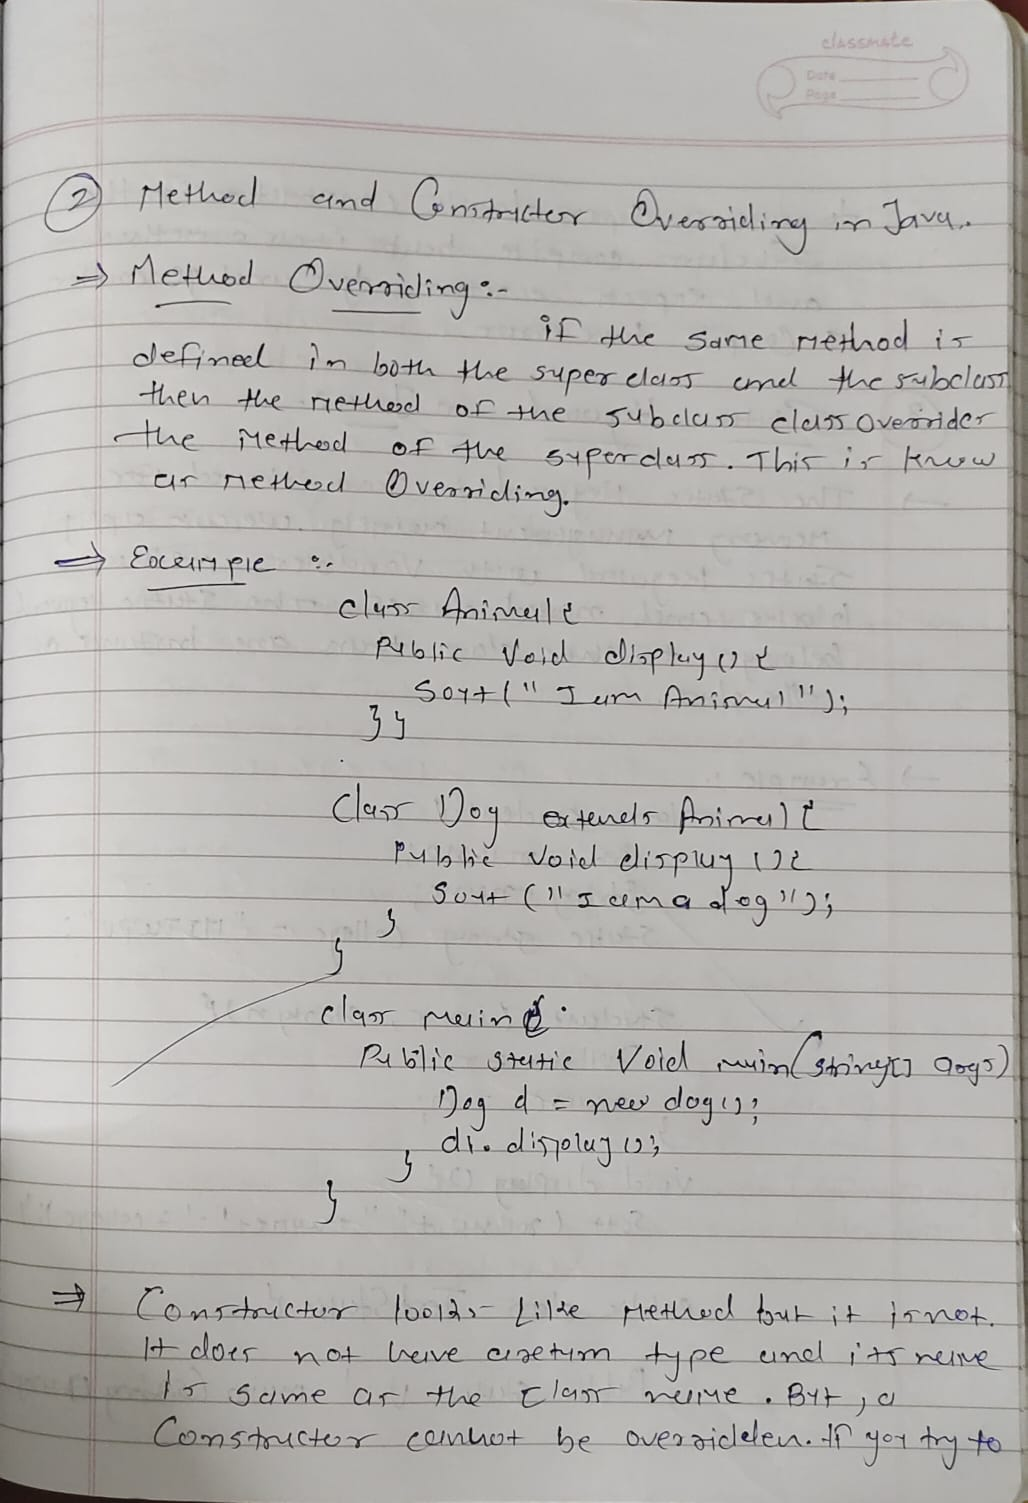 classmate
Date
Page
② Method and Constructer Overriding in Java.
⇒ Method Overriding :-
if the same method is
defined in both the superclass and the subclass
then the method of the subclass class overrider
the method of the superclass. This is know
as method Overriding.
⇒ Example :-
class Animal {
Public Void display () {
Sout (" I am Animal ");
} }
Class Dog extends Animal {
Public Void display () {
Sout (" I am a dog ");
}
}
class main {
Public static Void main (string[] args)
Dog d = new dog();
d1. display ();
}
}
⇒ Constructor looks Like Method but it is not.
It does not have a return type and its name
is same as the class name. But, a
Constructor cannot be overridden. If you try to